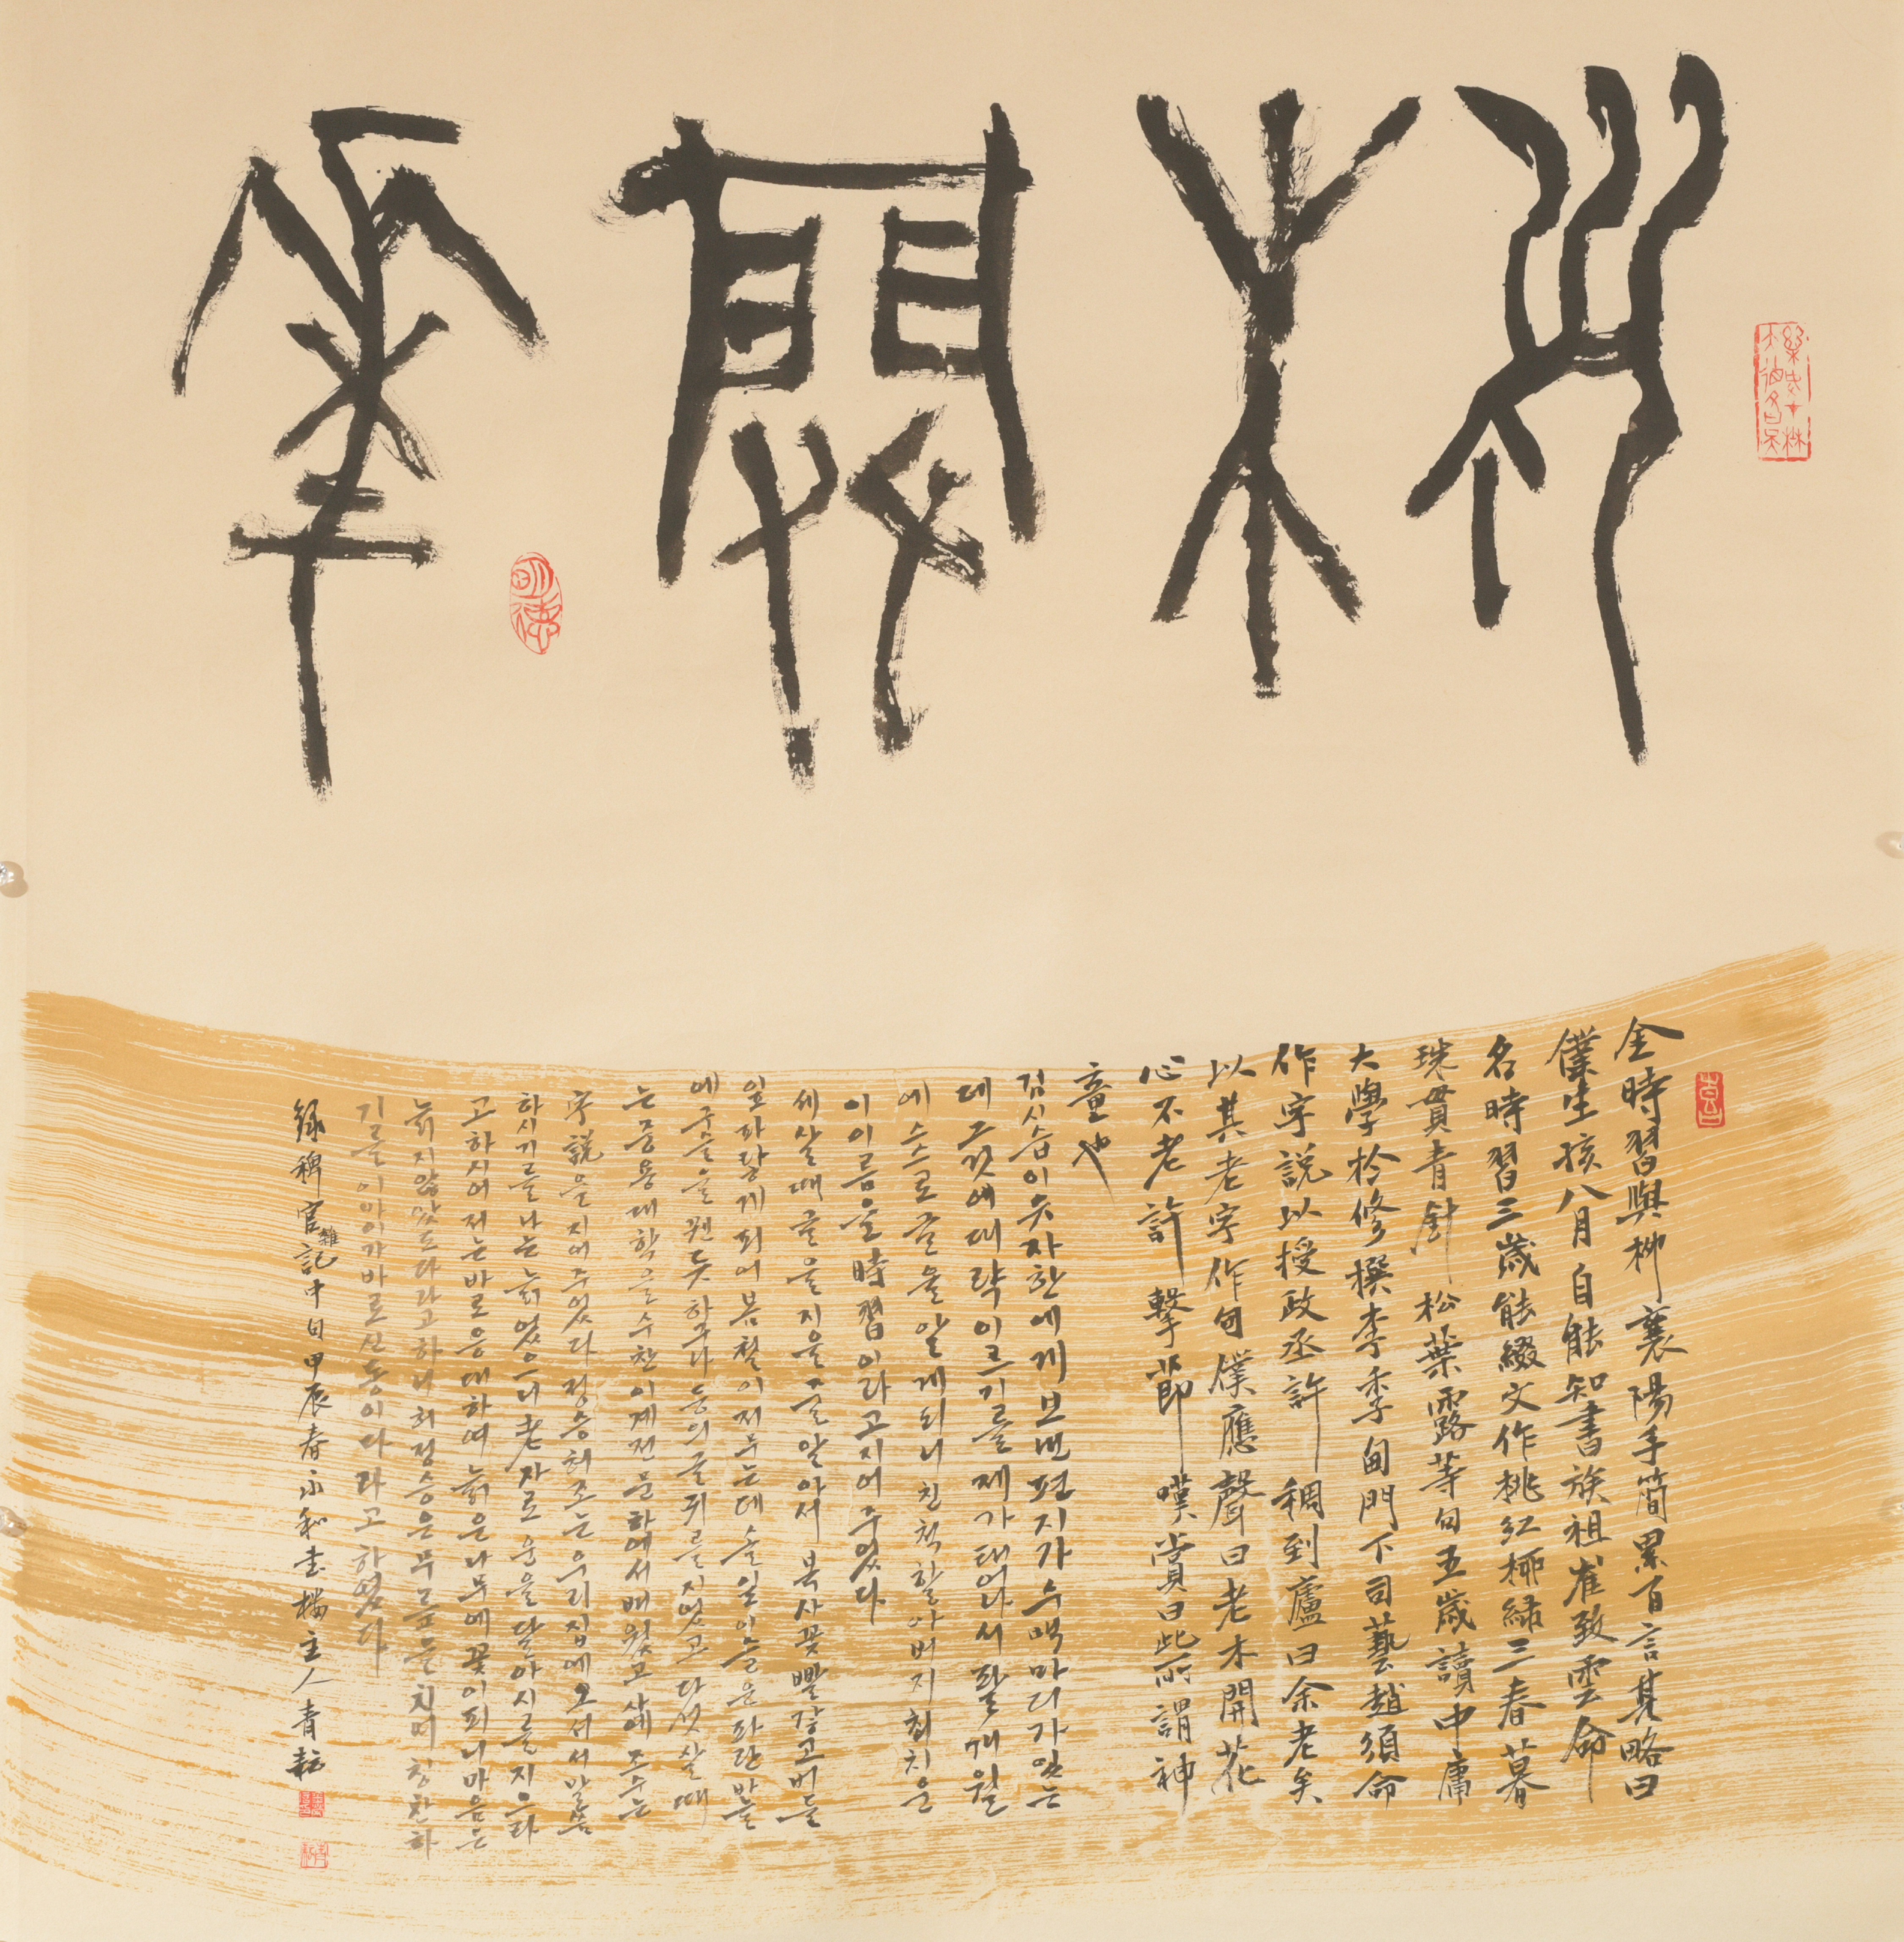 老木開花
金時習與柳襄陽手簡累百言其略曰
僕生孩八月自能知書族祖崔致雲命
名時習三歲能綴文作桃紅柳綠三春暮
珠貫青針松葉露等句五歲讀中庸
大學於修撰李季甸門下司藝趙須命
作字說以授政丞許稠到廬曰余老矣
以其老字作句僕應聲曰老木開花
心不老許擊節嘆賞曰此所謂神
童也
김시습이 유자한에게 보낸 편지가 수백마디가 있는
데 그것에 대략 이르기를 제가 태어나서 팔개월
에 스스로 글을 알게되니 친척할아버지 최치운
이 이름을 時習이라고 지어주었다
세살때 글을 지을줄 알아서 복사꽃 빨갛고 버들
잎 파랗게 피어 봄철이 저무는데 솔잎 이슬은 파란바늘
에 구슬을 꿴듯하구나 등의 글귀를 지었고 다섯살때
는 중용대학을 수찬 이계전 문하에서 배웠고 사예 조수는
字說을 지어주었다 정승 허조는 우리집에 오셔서 말씀
하시기를 나는 늙었으니 老자로 운을 달아 시를 지으라
고 하시어 저는 바로 응대하여 늙은나무에 꽃이피니 마음은
늙지않았도다라고 하니 허정승은 무릎을 치며 칭찬하
기를 이아이가 바로 신동이다라고 하였다
錄稗官雜記中句甲辰春 主人青耘